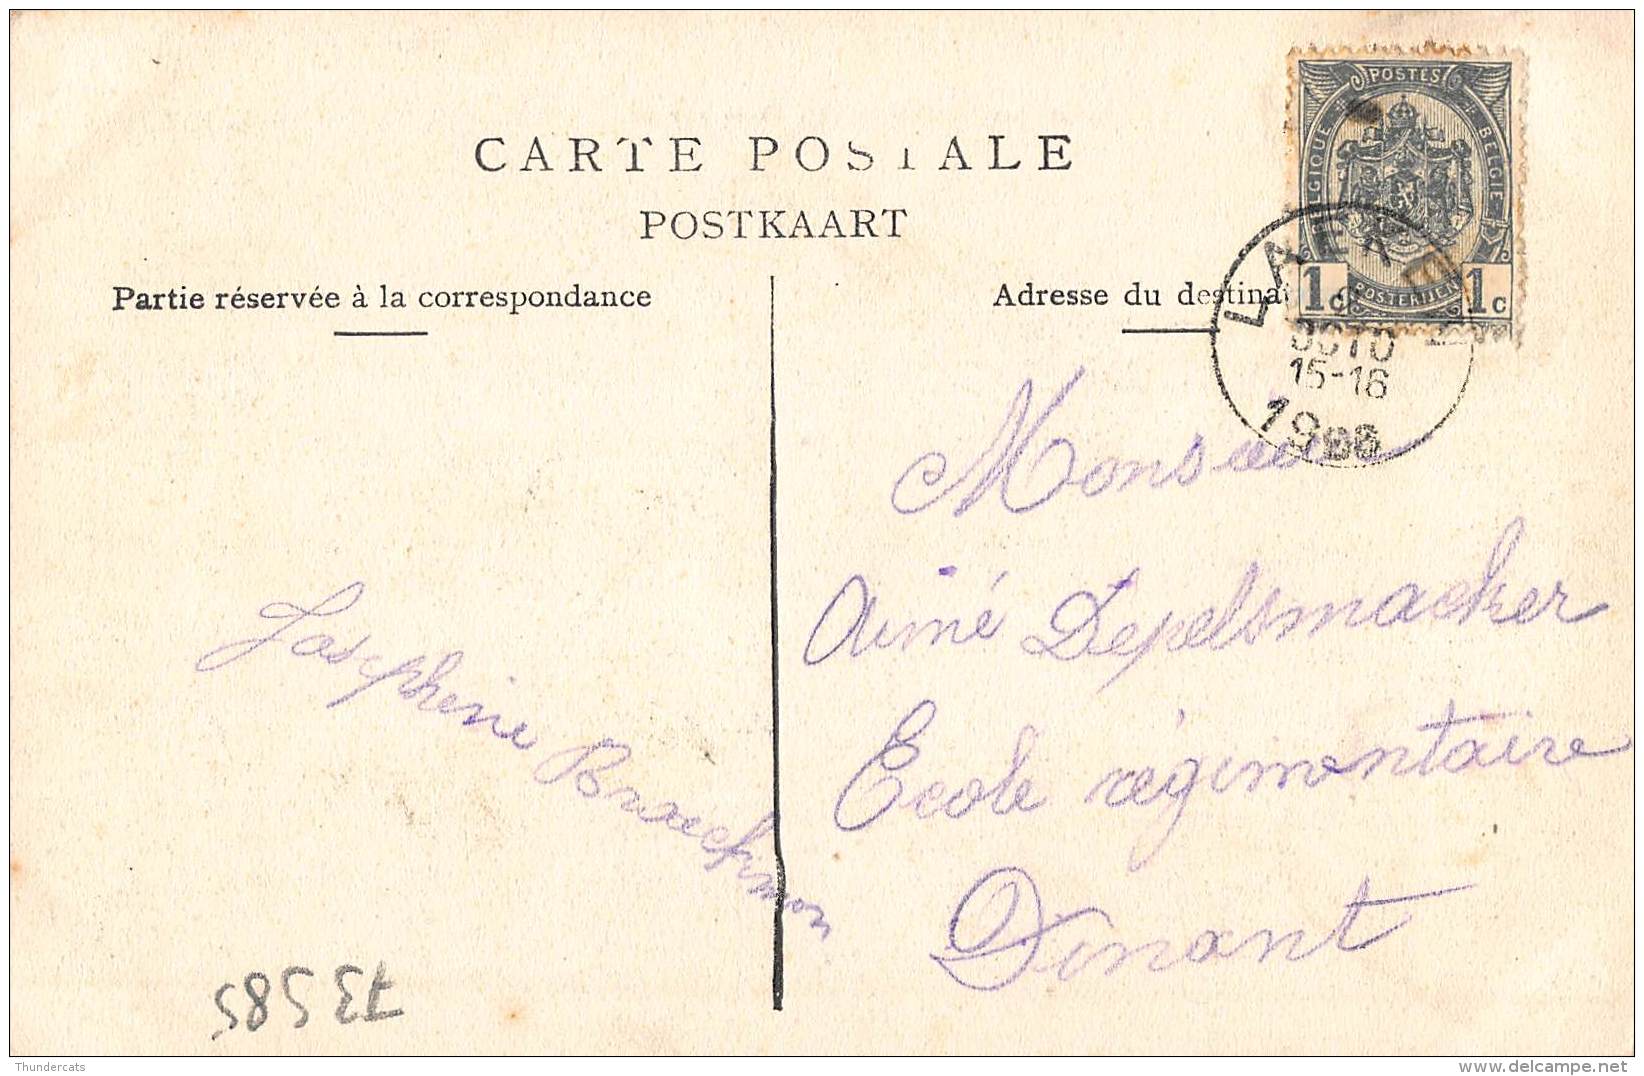 CARTE POSTALE
POSTKAART
Partie réservée à la correspondance
Adresse du destina
POSTES
BELGIE
1c 1c
POSTERIJEN
LAEK
OCTO
15-16
Monsieur
Aimé Depelsmacker
Ecole régimentaire
Dinant
Josephine
73585
Thundercats
delcampe.net